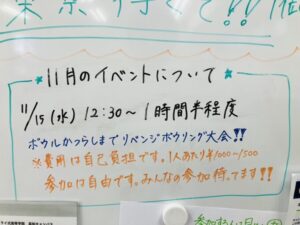 11月のイベントについて
11/15(水) 12:30～1時間半程度
ボウルかつらしまでリベンジボウリング大会!!
※費用は自己負担です。1人あたり¥1000~1500
参加は自由です。みんなの参加待ってます!!